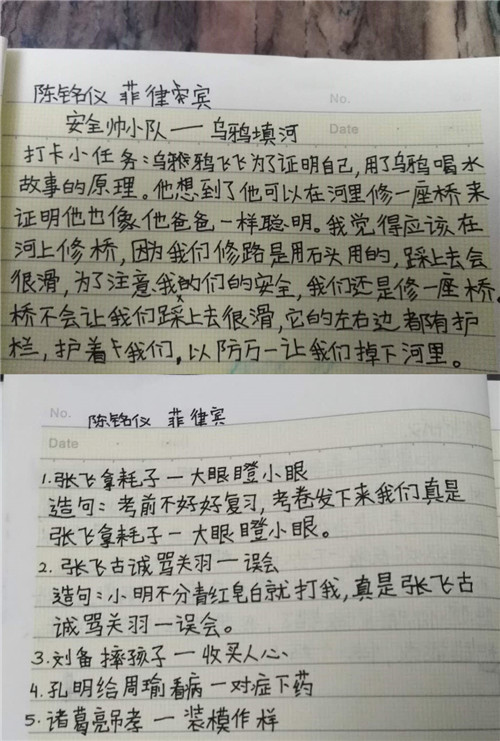 陈铭仪 菲律宾
No.
安全帅小队——乌鸦填河
Date
打卡小任务:乌鸦飞飞为了证明自己,用了乌鸦喝水
故事的原理。他想到了他可以在河里修一座桥来
证明他也像他爸爸一样聪明。我觉得应该在
河上修桥,因为我们修路是用石头用的,踩上去会
很滑,为了注意我的们的安全,我们还是修一座桥,
桥不会让我们踩上去很滑,它的左右边都有护
栏,护着我们,以防万一让我们掉下河里。
No. 陈铭仪 菲律宾
Date
1.张飞拿耗子一大眼瞪小眼
造句:考前不好好复习,考卷发下来我们真是
张飞拿耗子一大眼瞪小眼。
2.张飞古诚骂关羽一误会
造句:小明不分青红皂白就打我,真是张飞古
诚骂关羽一误会。
3.刘备摔孩子一收买人心
4.孔明给周瑜看病一对症下药
5.诸葛亮吊孝一装模作样